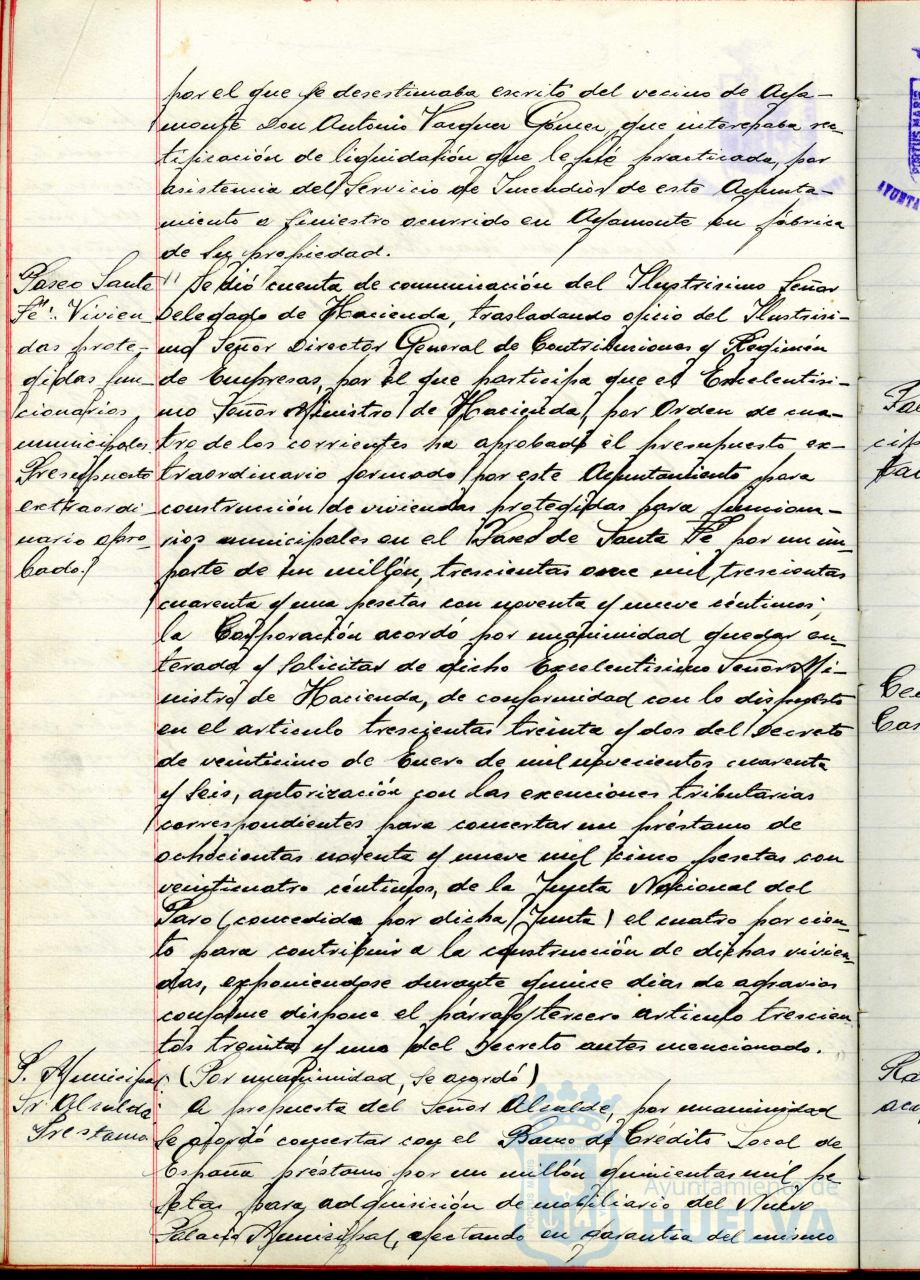 por el que se desestimaba escrito del vecino de Aya-
monte Don Antonio Vazquez Gómez, que interesaba rec-
tificación de liquidación que le fué practicada, por
asistencia del Servicio de Incendios de este Ayunta-
miento a siniestro ocurrido en Ayamonte en fábrica
de su propiedad.
Paseo Santa
Fé: Vivien-
das prote-
gidas fun-
cionarios
municipales.
Presupuesto
extraordi-
nario apro-
bado.
Se dió cuenta de comunicación del Ilustrisimo Señor
Delegado de Hacienda, trasladando oficio del Ilustrisi-
mo Señor Director General de Contribuciones y Regimén
de Empresas, por el que participa que el Excelentisi-
mo Señor Ministro de Hacienda, por Orden de cua-
tro de los corrientes ha aprobado el presupuesto ex-
traordinario formado por este Ayuntamiento para
construcción de viviendas protegidas para funciona-
rios municipales en el Paseo de Santa Fé por un im-
porte de un millón, trescientas once mil trescientas
cuarenta y una pesetas con noventa y nueve céntimos;
la Corporación acordó por unanimidad quedar en-
terada y solicitar de dicho Excelentisimo Señor Mi-
nistro de Hacienda, de conformidad con lo dispuesto
en el articulo trescientas treinta y dos del Decreto
de veinticinco de Enero de mil novecientos cuarenta
y seis, autorización con las exenciones tributarias
correspondientes para concertar un préstamo de
ochocientas noventa y nueve mil cinco pesetas con
veinticuatro céntimos, de la Junta Nacional del
Paro (concedida por dicha Junta) el cuatro por cien-
to para contribuir a la construcción de dichas vivien-
das, exponiendose durante quince dias de agravios
conforme dispone el párrafo tercero articulo trescien-
tos treinta y uno del Decreto antes mencionado.
(Por unanimidad, se acordó)
P. Municipal
Sr. Alcalde
Prestamo
A propuesta del Señor Alcalde, por unanimidad
se acordó concertar con el Banco de Crédito Local de
España préstamo por un millón quinientas mil pe
setas para adquisición de mobiliario del Nuevo
Palacio Municipal, afectando en garantia del mismo
Ayuntamiento de
HUELVA
PORTUS MARIS